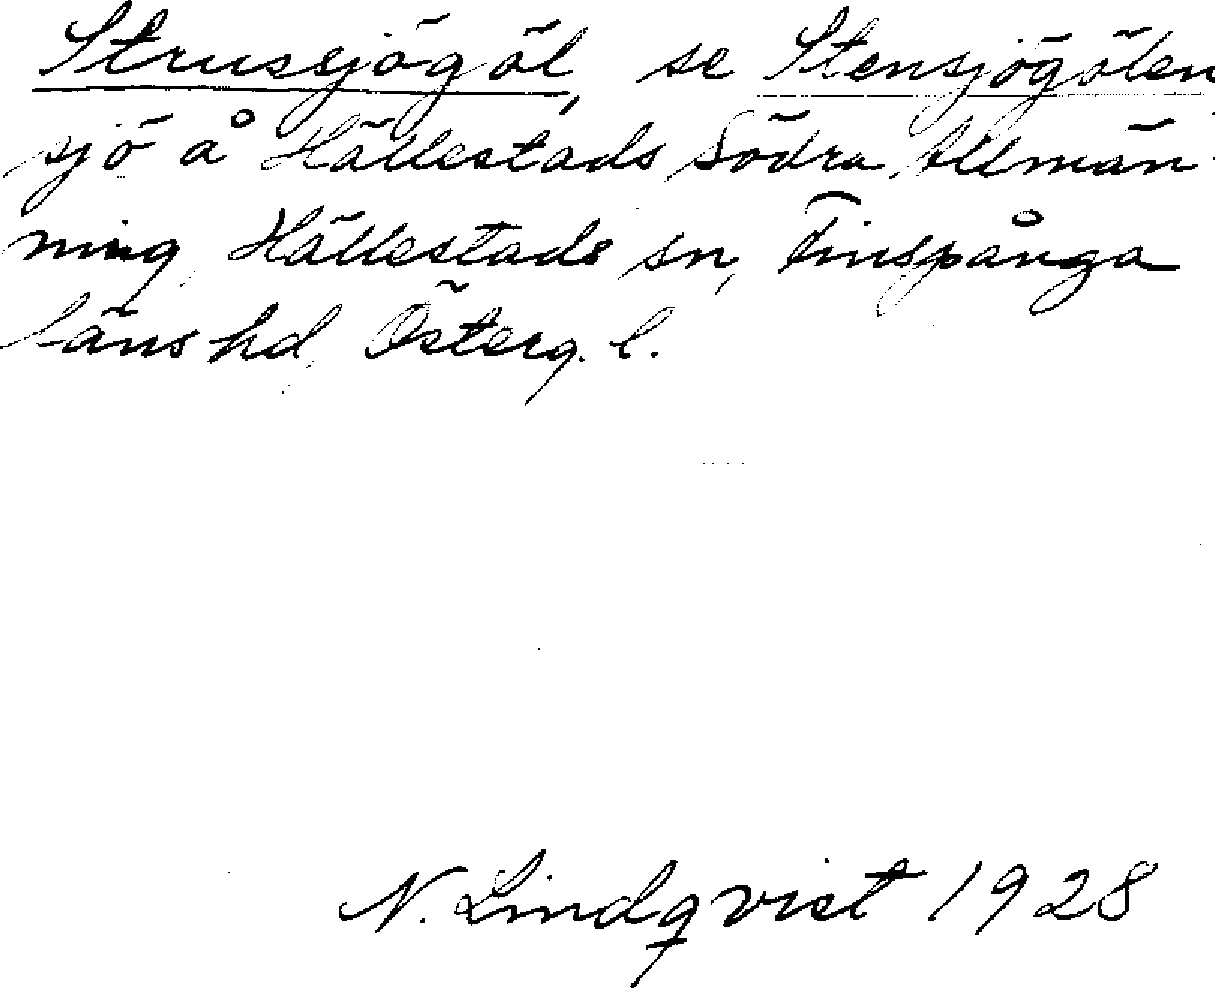 Strussjögöl, se Stensjögölen
sjö å Hällestads Södra Allmän-
ning, Hällestads sn, Finspånga
läns hd, Österg. l.
N. Lindqvist 1928